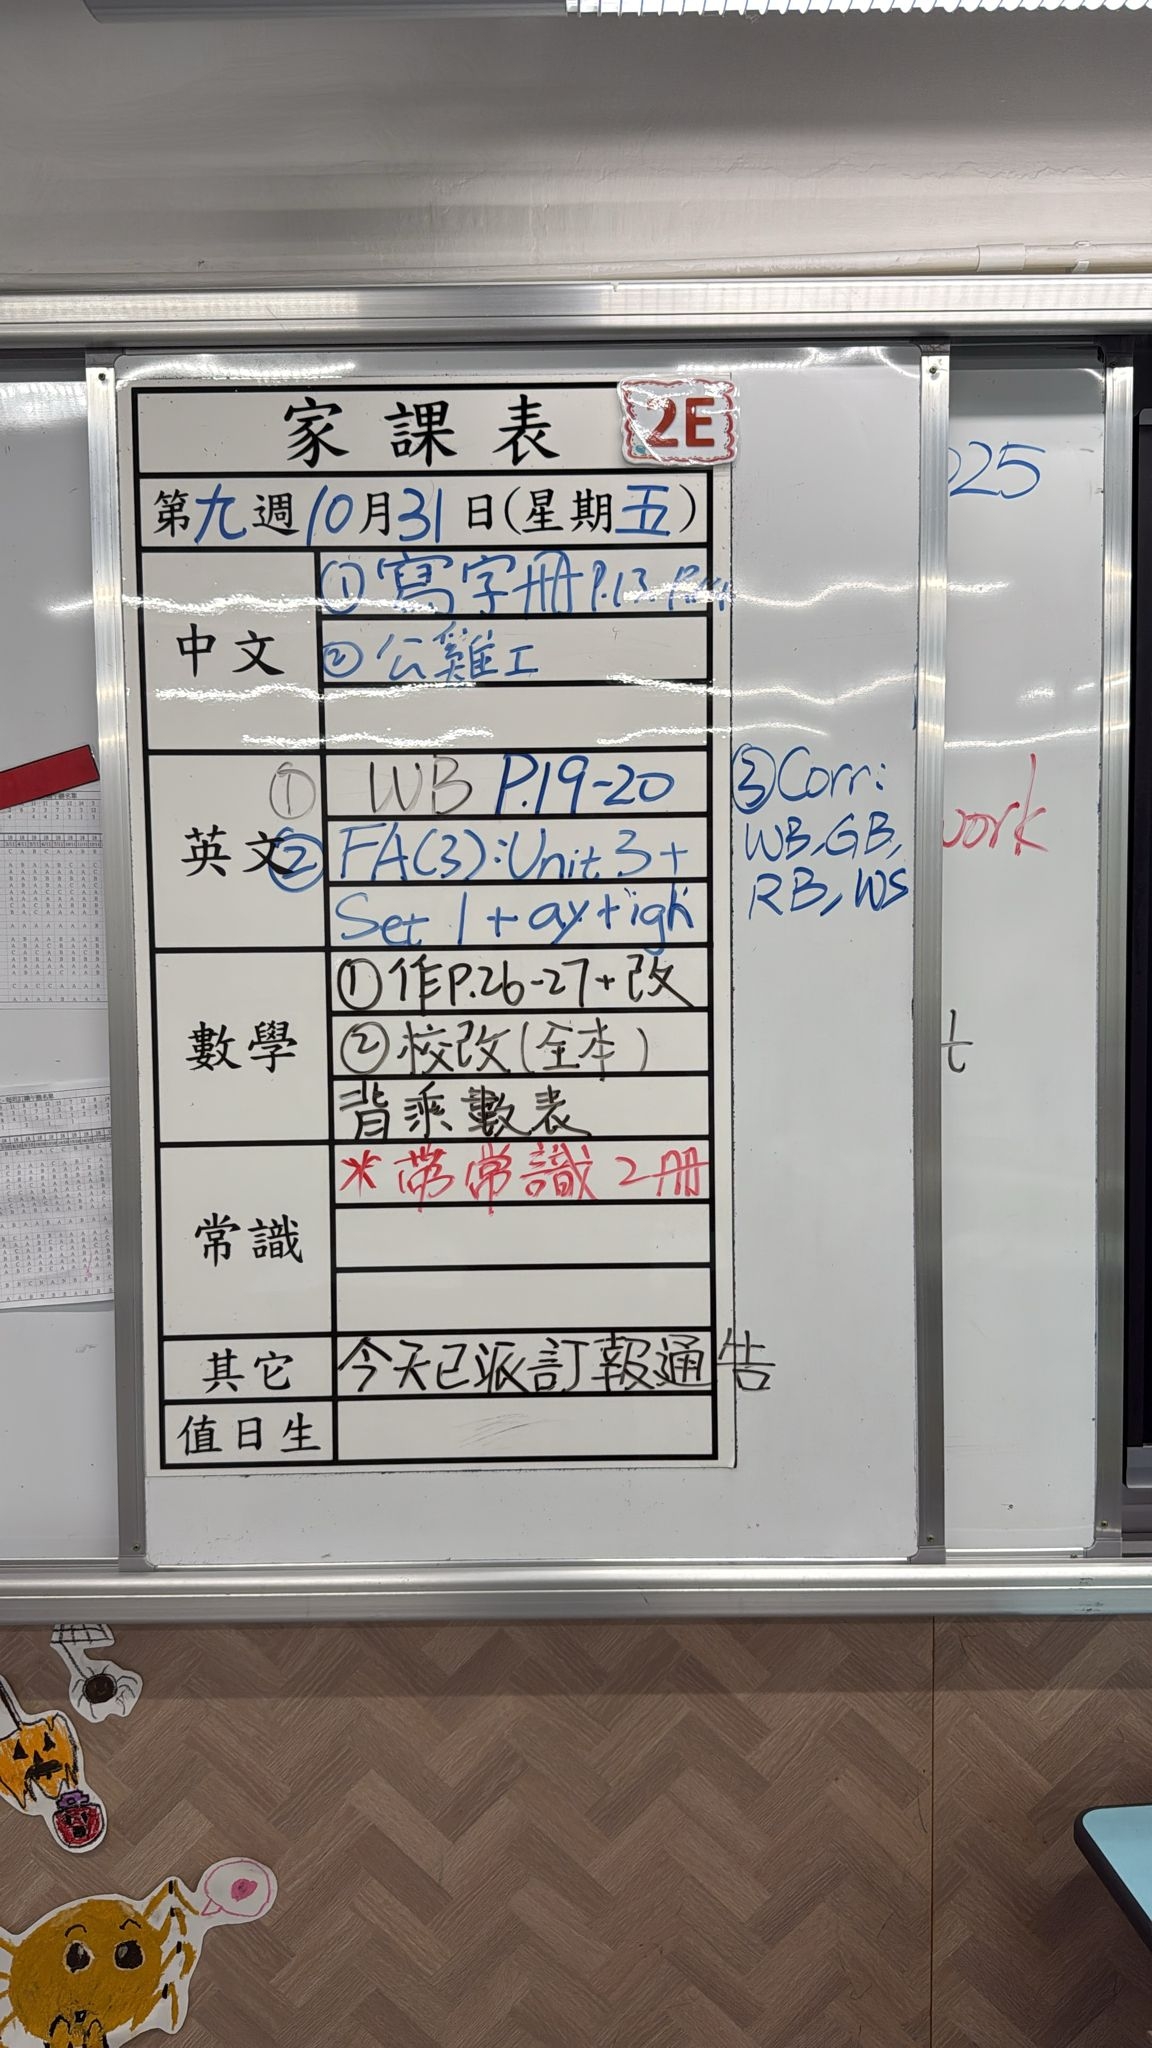 家課表 2E
第九週10月31日(星期五)
中文
①寫字冊P.13
②公雞工
英文
① WB P.19-20
② FA(3):Unit 3+
Set 1 + ay + igh
③Corr:
WB,GB,
RB,WS
數學
①作P.26-27+改
②校改(全本)
背乘數表
常識
*帶常識2冊
其它
今天已派訂報通告
值日生
025
work
t